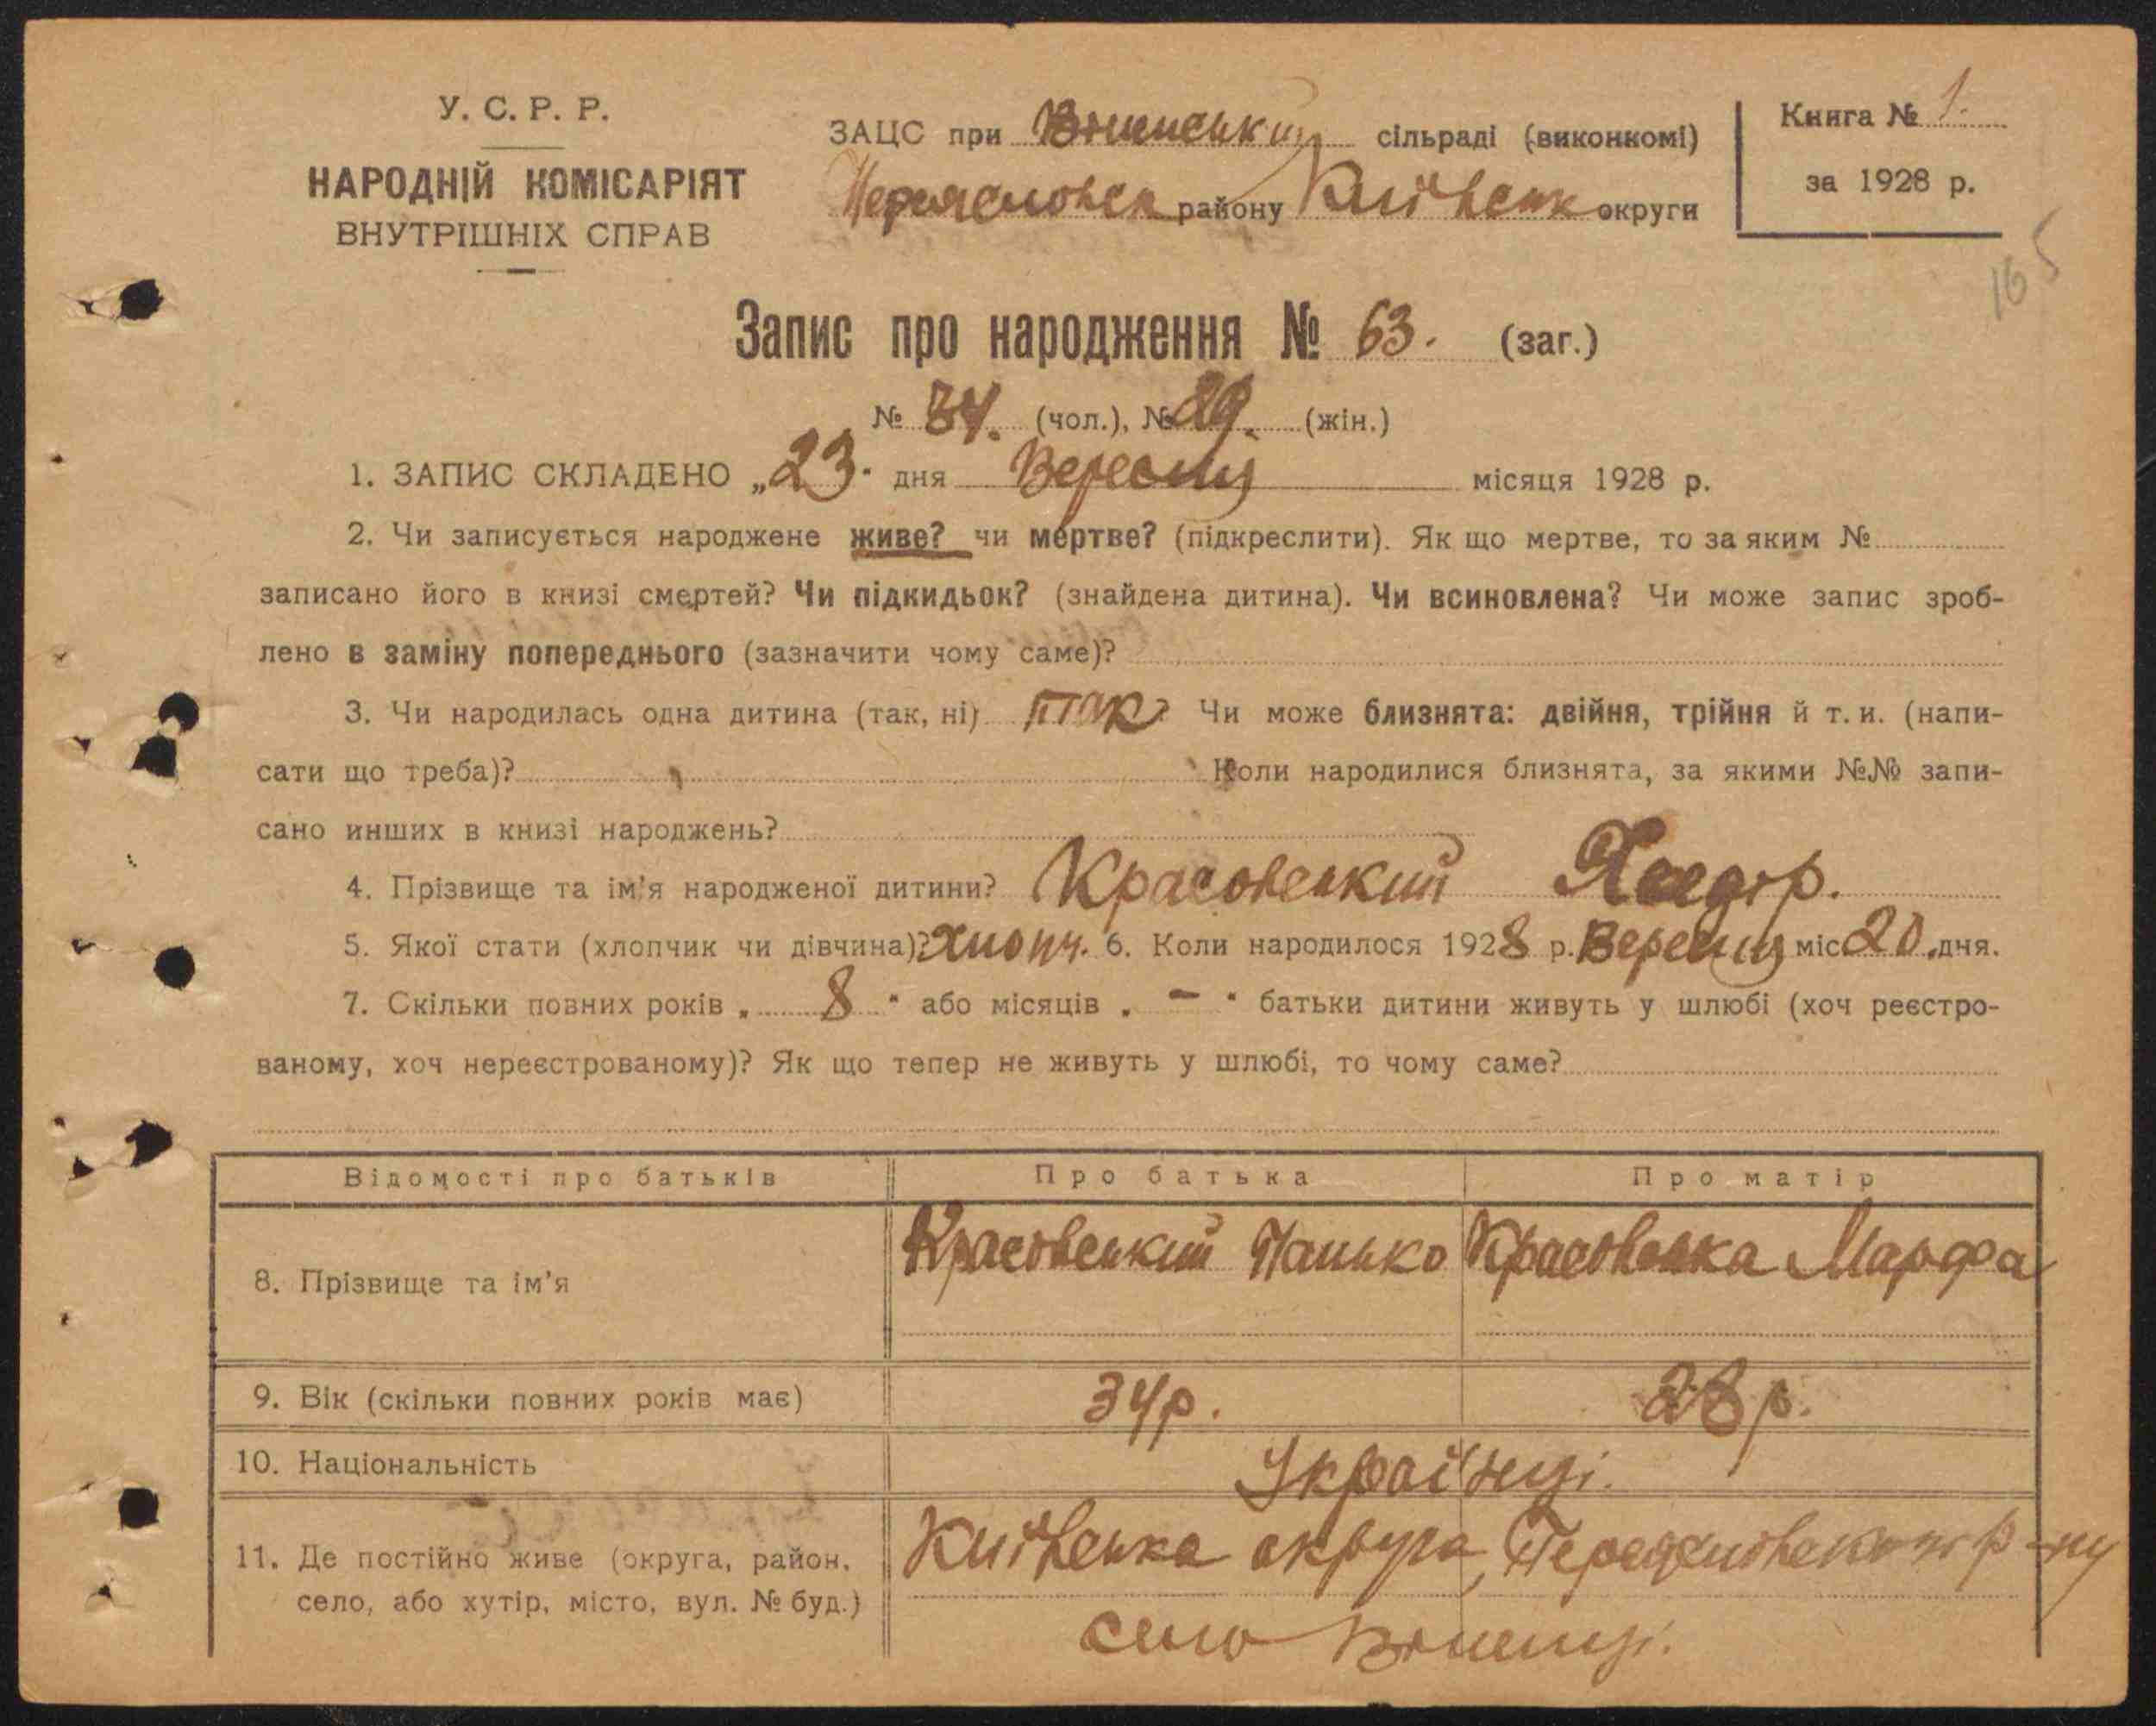 У. С. Р. Р.
НАРОДНІЙ КОМІСАРІЯТ
ВНУТРІШНІХ СПРАВ
ЗАЦС при сільраді (виконкомі)
Переяславськ району Київськ округи
Книга № 1.
за 1928 р.
165
Запис про народження № 63. (заг.)
№ 34. (чол.), № 29. (жін.)
1. ЗАПИС СКЛАДЕНО „23" дня Вересня місяця 1928 р.
2. Чи записується народжене живе? чи мертве? (підкреслити). Як що мертве, то за яким №
записано його в книзі смертей? Чи підкидьок? (знайдена дитина). Чи всиновлена? Чи може запис зроб-
лено в заміну попереднього (зазначити чому саме)?
3. Чи народилась одна дитина (так, ні) так Чи може близнята: двійня, трійня й т. и. (напи-
сати що треба)? Коли народилися близнята, за якими №№ запи-
сано инших в книзі народжень?
4. Прізвище та ім'я народженої дитини? Красовський
5. Якої стати (хлопчик чи дівчина)? хлопч. 6. Коли народилося 1928 р. Вересня міс 20. дня.
7. Скільки повних років „ 8 " або місяців „ – " батьки дитини живуть у шлюбі (хоч реєстро-
ваному, хоч нереєстрованому)? Як що тепер не живуть у шлюбі, то чому саме?
Відомості про батьків Про батька Про матір
8. Прізвище та ім'я Красовський Панько Красовська Марфа
9. Вік (скільки повних років має) 34 р. 28 р.
10. Національність Українці.
11. Де постійно живе (округа, район, Київська округа, р-ну
село, або хутір, місто, вул. № буд.) село